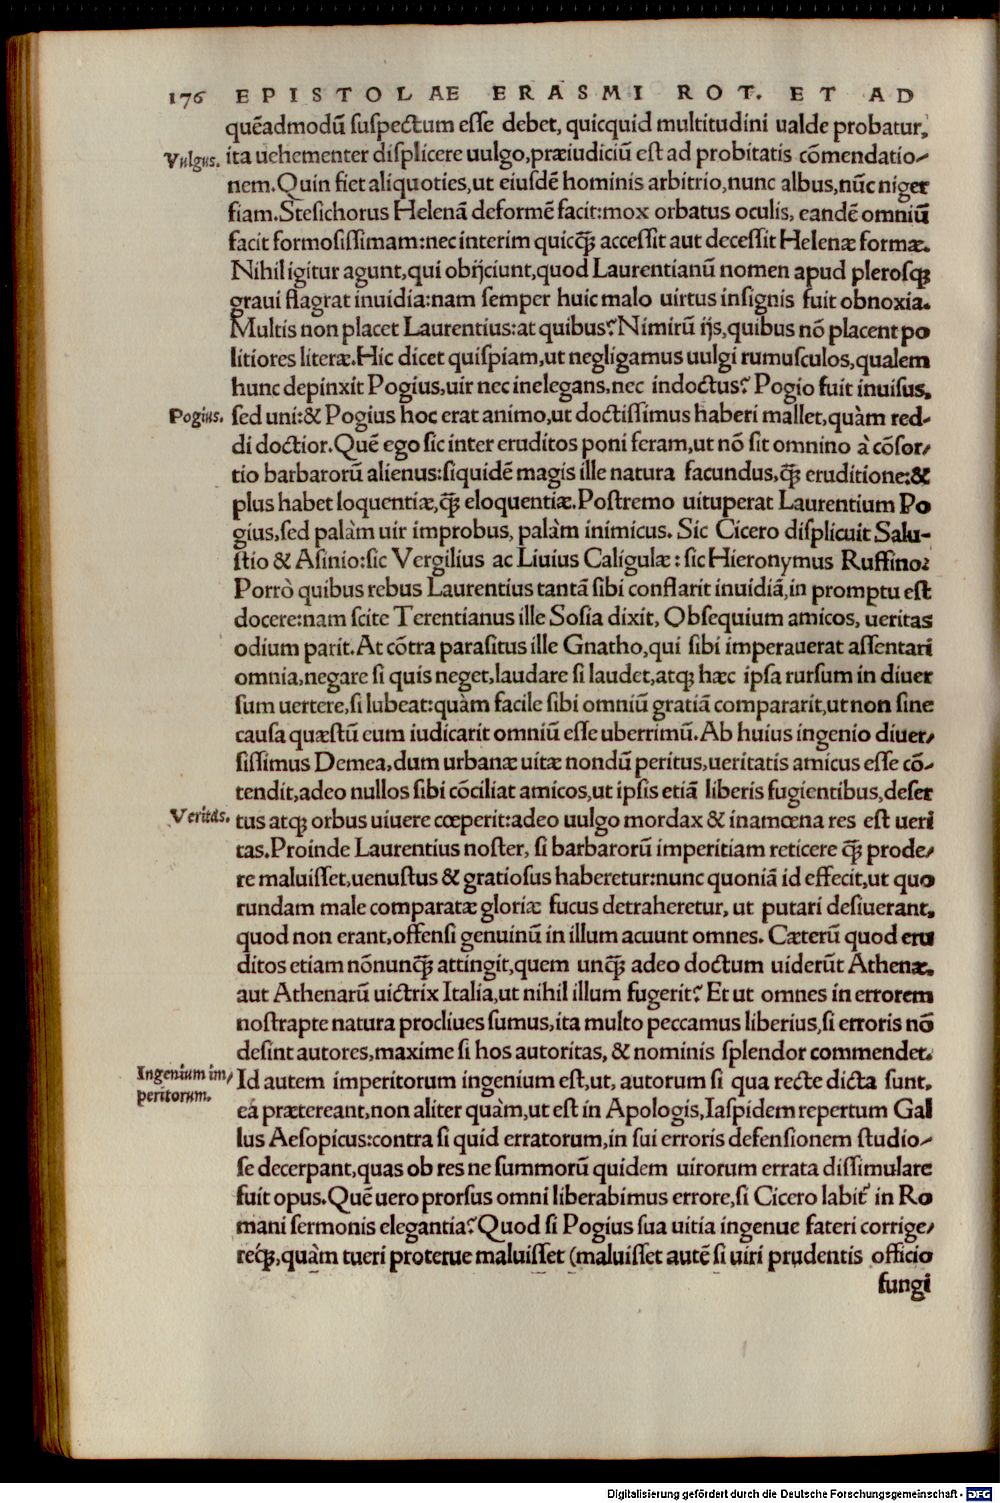 176 EPISTOLAE ERASMI ROT. ET AD
quēadmodū suspectum esse debet, quicquid multitudini ualde probatur,
Vulgus.
ita uehementer displicere uulgo,præiudiciū est ad probitatis cōmendatio-
nem.Quin fiet aliquoties,ut eiusdē hominis arbitrio,nunc albus,nūc niger
fiam.Stesichorus Helenā deformē facit:mox orbatus oculis, eandē omniū
facit formosissimam:nec interim quicq̄ȝ accessit aut decessit Helenæ formæ.
Nihil igitur agunt,qui obijciunt,quod Laurentianū nomen apud plerosqȝ
graui flagrat inuidia:nam semper huic malo uirtus insignis fuit obnoxia.
Multis non placet Laurentius:at quibus? Nimirū ijs,quibus nō placent po
litiores literæ.Hic dicet quispiam,ut negligamus uulgi rumusculos,qualem
hunc depinxit Pogius,uir nec inelegans,nec indoctus? Pogio fuit inuisus,
Pogius.
sed uni:& Pogius hoc erat animo,ut doctissimus haberi mallet,quàm red-
di doctior.Quē ego sic inter eruditos poni feram,ut nō sit omnino à cōsor-
tio barbarorū alienus:siquidē magis ille natura facundus,q̄ȝ eruditione:&
plus habet loquentiæ,q̄ȝ eloquentiæ.Postremo uituperat Laurentium Po
gius,sed palàm uir improbus, palàm inimicus. Sic Cicero displicuit Salu-
stio & Asinio:sic Vergilius ac Liuius Caligulæ: sic Hieronymus Ruffino?
Porrò quibus rebus Laurentius tantā sibi conflarit inuidiā,in promptu est
docere:nam scite Terentianus ille Sosia dixit, Obsequium amicos, ueritas
odium parit.At cōtra parasitus ille Gnatho,qui sibi imperauerat assentari
omnia,negare si quis neget,laudare si laudet,atqȝ hæc ipsa rursum in diuer
sum uertere,si lubeat:quàm facile sibi omniū gratiā compararit,ut non sine
causa quæstū eum iudicarit omniū esse uberrimū.Ab huius ingenio diuer-
sissimus Demea,dum urbanæ uitæ nondū peritus,ueritatis amicus esse cō-
tendit,adeo nullos sibi cōciliat amicos,ut ipsis etiā liberis fugientibus,deser
Veritas.
tus atqȝ orbus uiuere cœperit:adeo uulgo mordax & inamœna res est ueri
tas.Proinde Laurentius noster, si barbarorū imperitiam reticere q̄ȝ prode-
re maluisset,uenustus & gratiosus haberetur:nunc quoniā id effecit,ut quo
rundam male comparatæ gloriæ fucus detraheretur, ut putari desiuerant,
quod non erant,offensi genuinū in illum acuunt omnes. Cæterū quod eru
ditos etiam nōnunq̄ȝ attingit,quem unq̄ȝ adeo doctum uiderūt Athenæ,
aut Athenarū uictrix Italia,ut nihil illum fugerit? Et ut omnes in errorem
nostrapte natura procliues sumus,ita multo peccamus liberius,si erroris nō
desint autores,maxime si hos autoritas, & nominis splendor commendet.
Ingenium im-
peritorum.
Id autem imperitorum ingenium est,ut, autorum si qua recte dicta sunt,
ea prætereant,non aliter quàm,ut est in Apologis,Iaspidem repertum Gal
lus Aesopicus:contra si quid erratorum,in sui erroris defensionem studio-
se decerpant,quas ob res ne summorū quidem uirorum errata dissimulare
fuit opus.Quē uero prorsus omni liberabimus errore,si Cicero labit̃ in Ro
mani sermonis elegantia? Quod si Pogius sua uitia ingenue fateri corrige-
reqȝ,quàm tueri proterue maluisset (maluisset autē si uiri prudentis officio
fungi
Digitalisierung gefördert durch die Deutsche Forschungsgemeinschaft - DFG